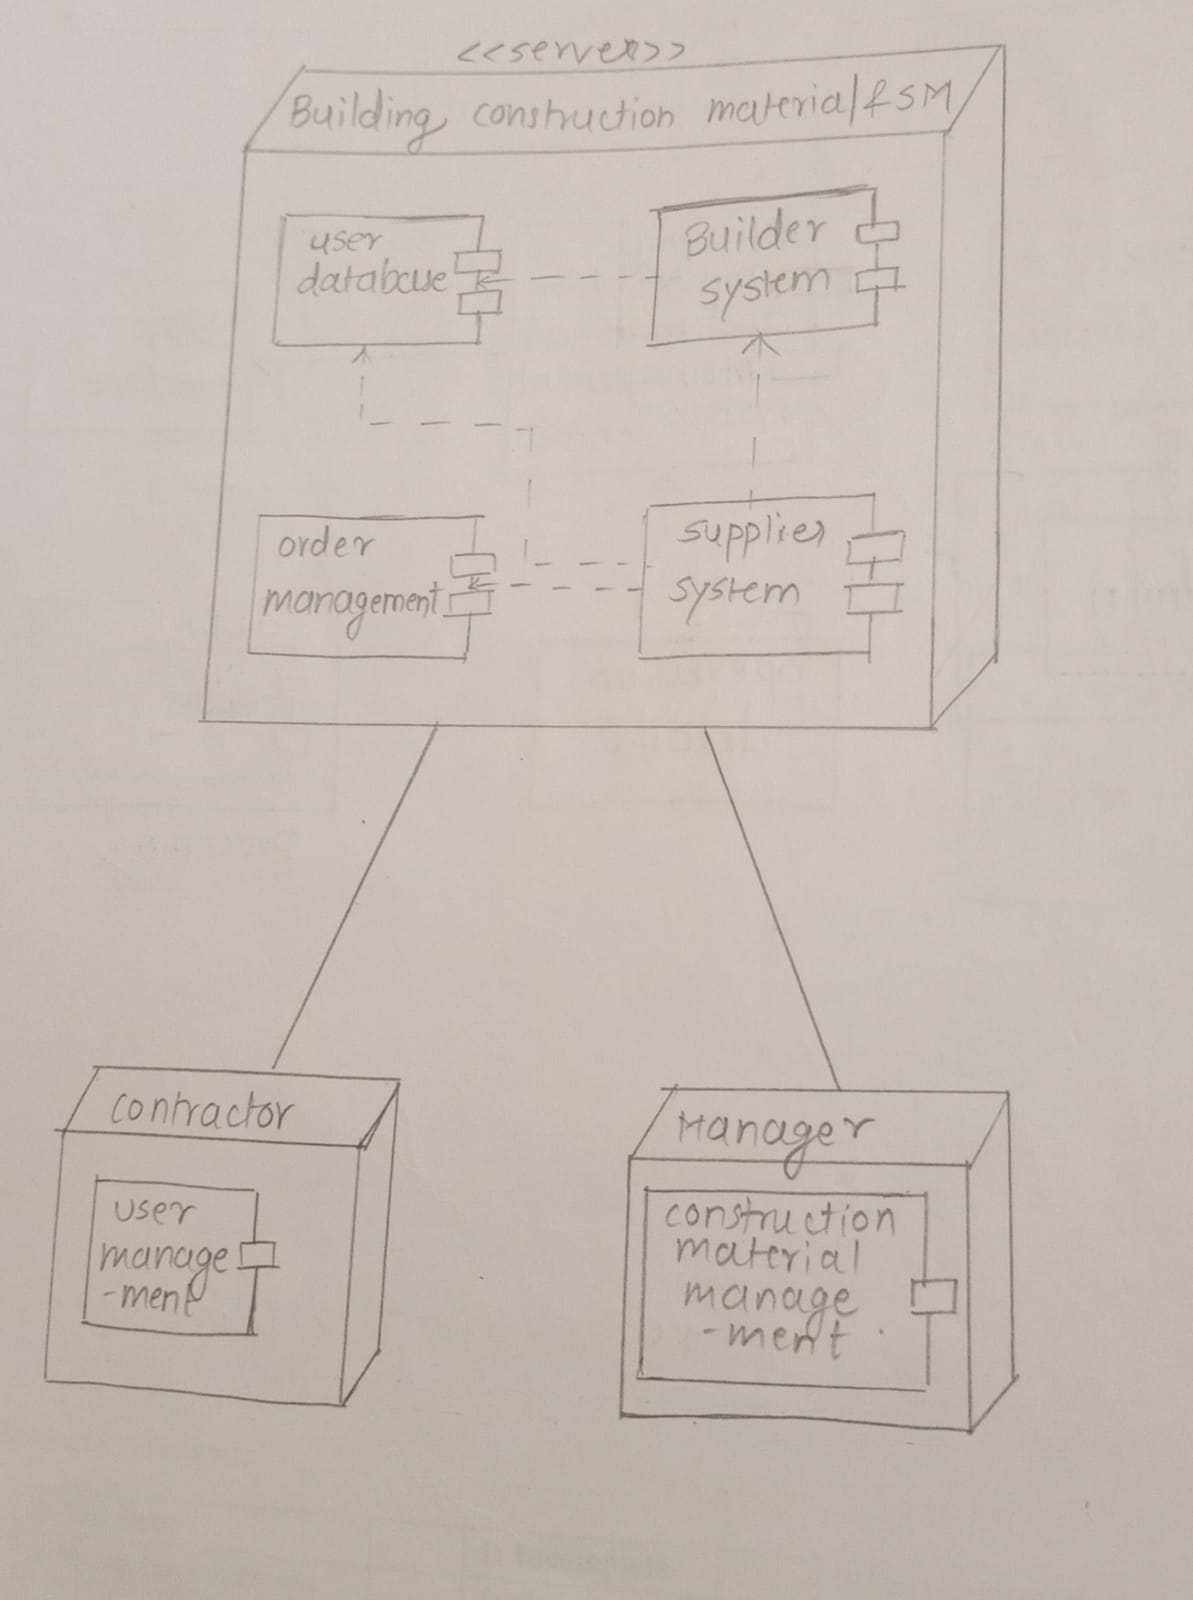 <<server>>
Building construction material/fSM
user
database
Builder
system
order
management
supplier
system
contractor
user
manage
-ment
Manager
construction
material
manage
-ment